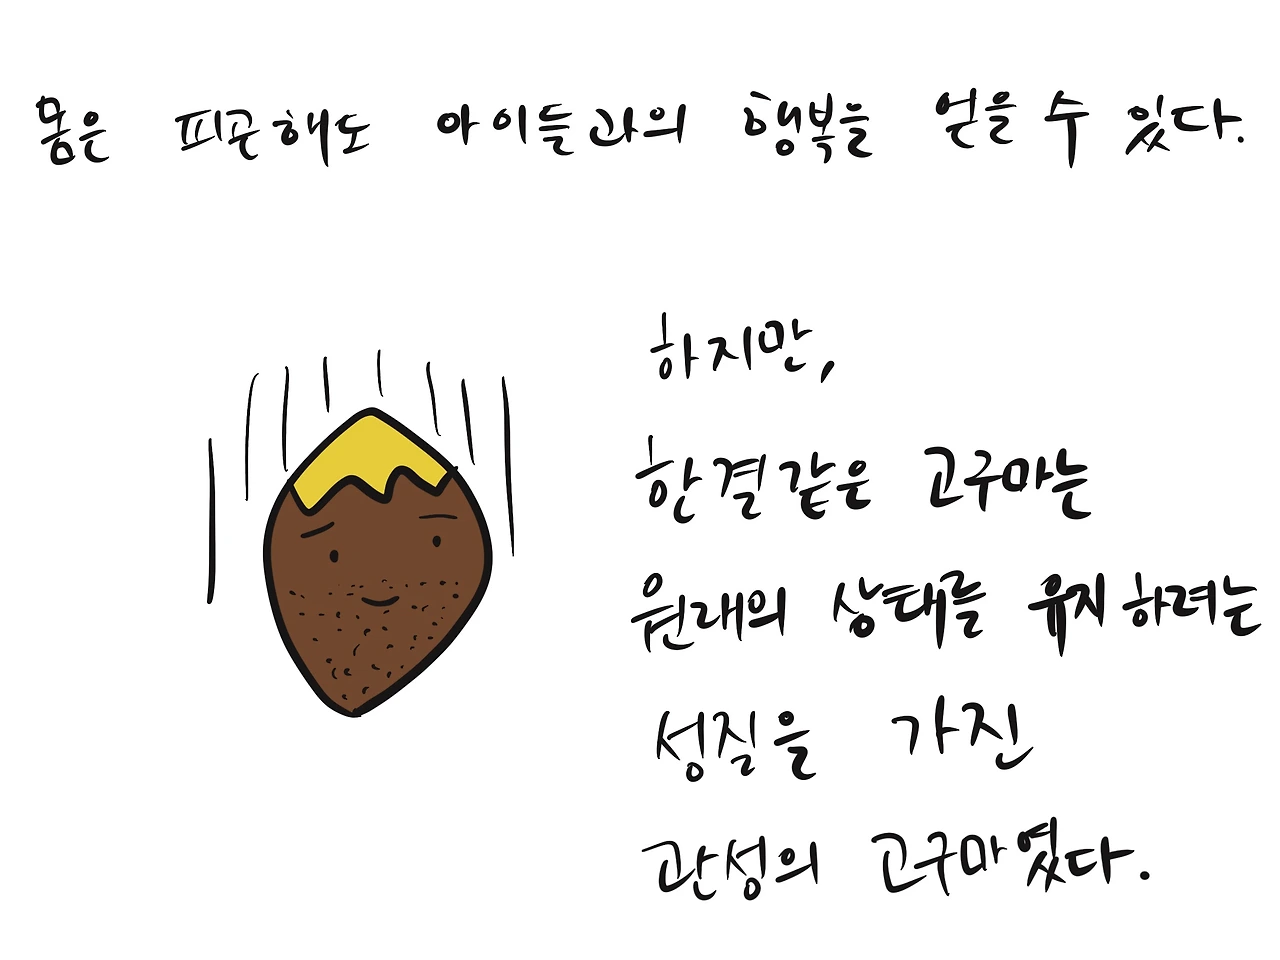 몸은 피곤해도 아이들과의 행복을 얻을 수 있다.
하지만,
한결같은 고구마는
원래의 상태를 유지하려는
성질을 가진
관성의 고구마였다.